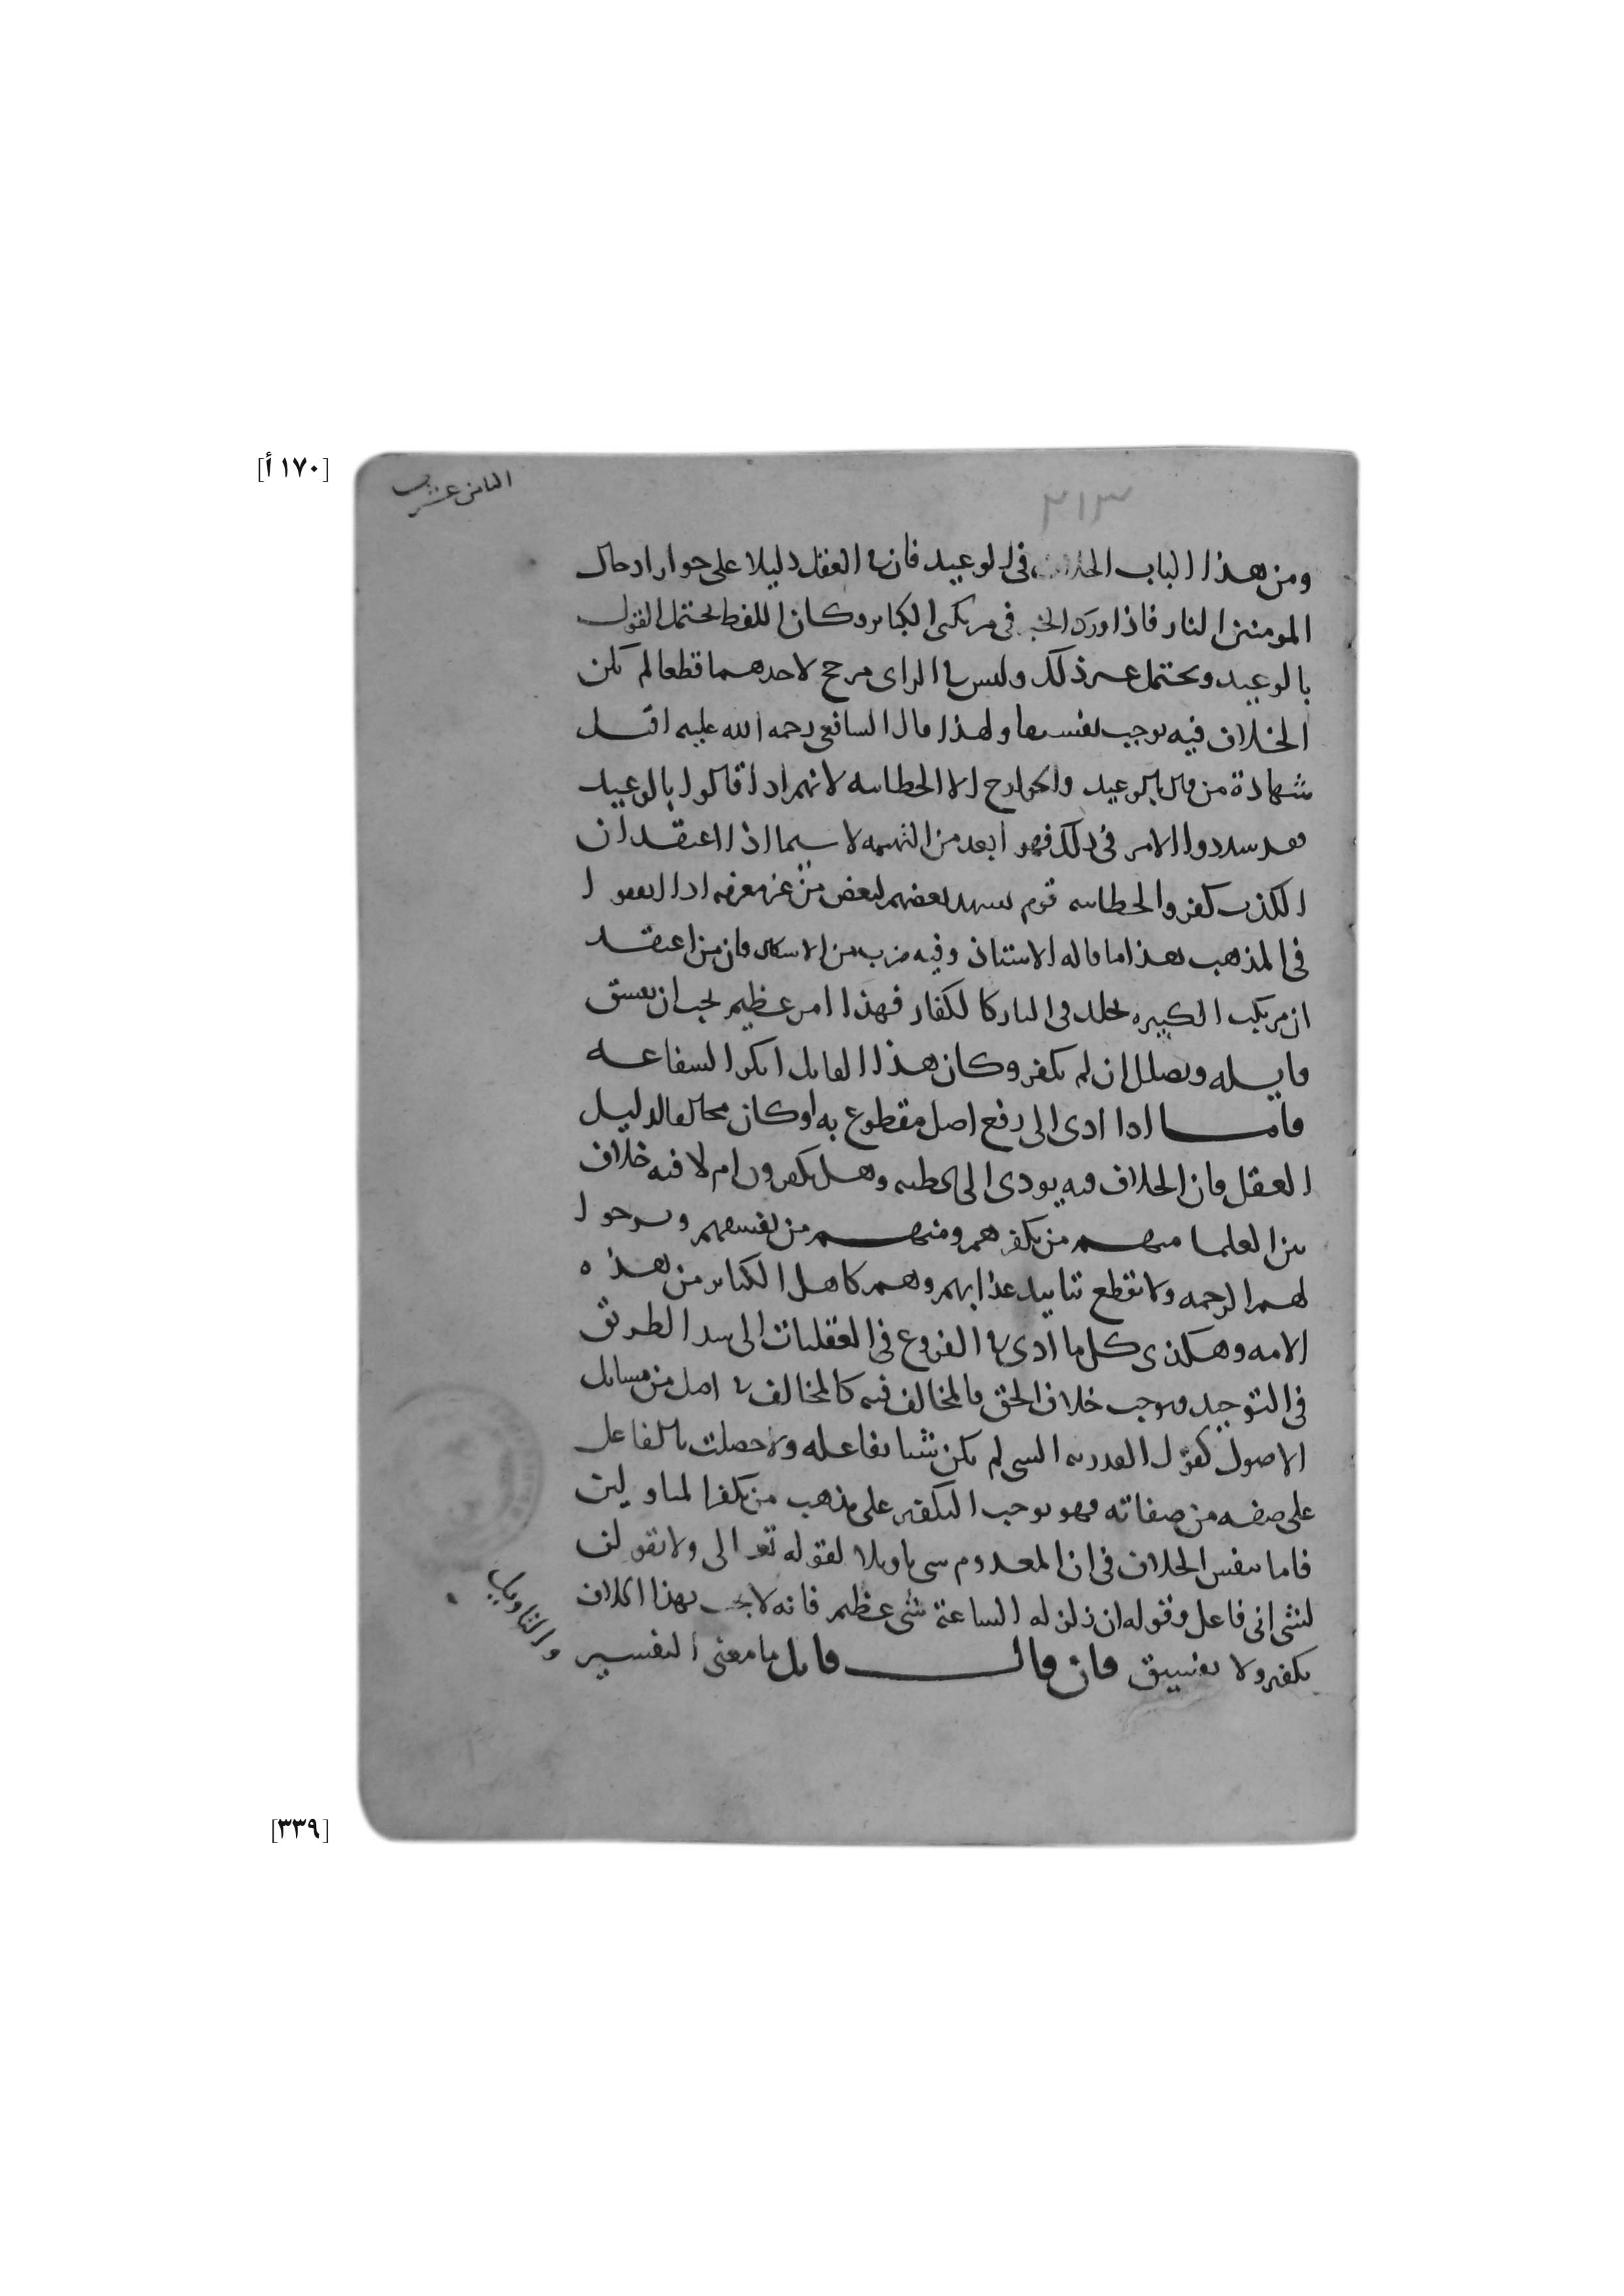 [١٧٠ أ]
الثامن عشر
٣١٣
ومن هذا الباب الخلاف في الوعيد فان في العقل دليلا على جواز ادخال
المومنين النار فاذا ورد الخبر في مرتكبي الكبائر وكان اللفظ يحتمل القول
بالوعيد ويحتمل غير ذلك وليس في الراى مرجح لاحدهما قطعا لم يكن
الخلاف فيه يوجب تفسيقا ولهذا قال الشافعي رحمه الله عليه اقبل
شهادة من قال بالوعيد والخوارج الا الخطابيه لانهم اذا قالوا بالوعيد
فقد شددوا الامر في ذلك فهو ابعد من التهمه لا سيما اذا اعتقد ان
الكذب كفر والخطابيه قوم يشهد بعضهم لبعض من غير معرفه اذا اتفقوا
في المذهب هذا ما قاله الاستاذ وفيه ضرب من الاشكال فان من اعتقد
ان مرتكب الكبيره يخلد في النار كالكفار فهذا امر عظيم يجب ان يفسق
قايله ويضلل ان لم يكفر وكان هذا القايل انكر الشفاعه
فامـا اذا ادى الى رفع اصل مقطوع به او كان مخالفا لدليل
العقل فان الخلاف فيه يودى الى تخطئه وهل يكفرون ام لا فيه خلاف
بين العلما منهم من يكفرهم ومنهم من يفسقهم ويرجوا
لهم الرحمه ولا تقطع بتابيد عذابهم وهم كاهل الكبائر من هذه
الامه وهكذى كل ما ادى في الفروع في العقليات الى سد الطريق
في التوحيد ويوجب خلاف الحق فالمخالف فيه كالمخالف في اصل من مسايل
الاصول كقول القدريه الشى لم يكن شيا بفاعله ولا حصلت بالفاعل
على صفه من صفاته فهو يوجب التكفير على مذهب من يكفر المتاولين
فاما بنفس الخلاف في ان المعدوم شى تاويلا لقوله تعالى ولا تقولن
لشى انى فاعل وقوله ان زلزله الساعة شى عظيم فانه لا يجب بهذا الخلاف
تكفير ولا تفسيق فان قال قايل ما معنى التفسير
والتاويل
[٣٣٩]